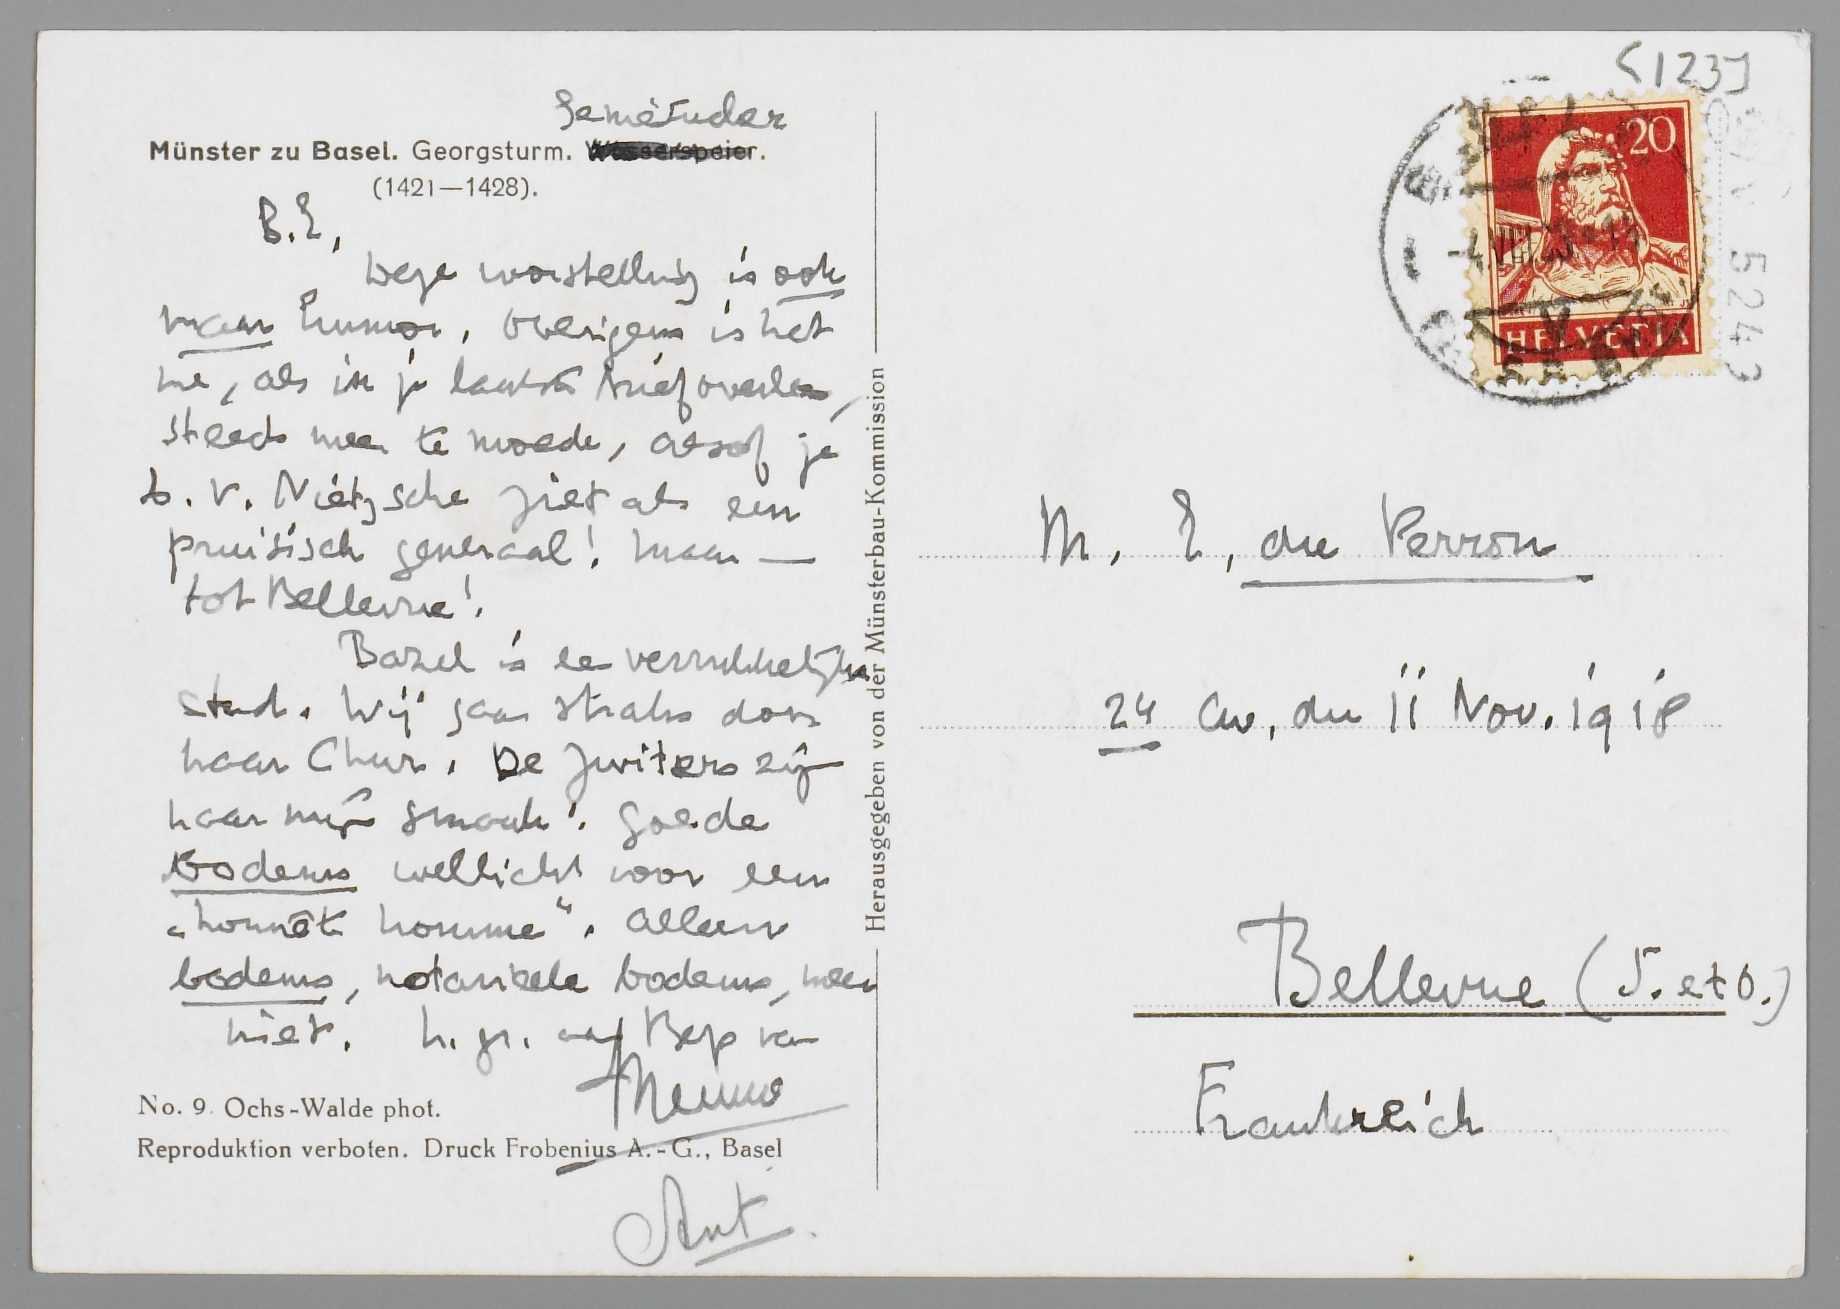 Münster zu Basel. Georgsturm. Wasserspeier.
(1421—1428).
B.E,
Deze voorstelling is ook
maar humor, overigens is het
me, als ik je laatste brief overlees,
steeds meer te moede, alsof je
b.v. Nietzsche ziet als een
pruisisch generaal! Maar —
tot Bellevue!
Bazel is een verrukkelijke
stad. Wij gaan straks door
naar Chur. De Zwitsers zijn
naar mijn smaak! Goede
bodems wellicht voor een
„honnête homme“. Alleen
bodems, notarieele bodems, meer
niet. h. gr. ook Bep van
Menno
Ant
No. 9. Ochs-Walde phot.
Reproduktion verboten. Druck Frobenius A.-G., Basel
Herausgegeben von der Münsterbau-Kommission
20
HELVETIA
5243
M. E, du Perron
24 av, du 11 Nov. 1918
Bellevue (S. et O.)
Frankreich